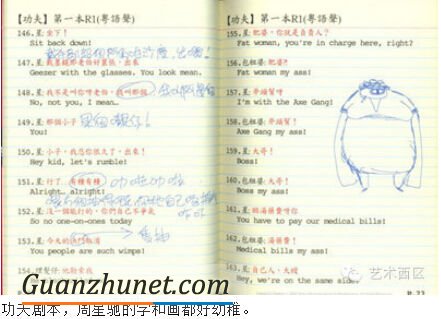 【功夫】第一本R1(粵語聲) 【功夫】第一本R1(粵語聲)
146.星: 坐下!
Sit back down!
出嚟!
147.星: 出來!
Geezer with the glasses. You look mean.
148.星: 我不是叫你呀老伯,我叫那個
No, not you, I mean...
149.星: 那個小子
You!
150.星: 小子,我忍你很久了,出來!
Hey kid, let's rumble!
151.星: 行了,有種有種
Alright, alright!
152.星: 沒一個能打的,你們自己不爭氣
So no one-on-ones today
153.星: 今天的決鬥取消
You people are such wimps!
154.理髮仔: 他勒索我
155.星: 肥婆,你就是負責人?
Fat woman, you're in charge here, right?
156.包租婆: 肥婆?
Fat woman my ass!
157.星: 斧頭幫呀
I'm with the Axe Gang!
158.包租婆: 斧頭幫?
Axe Gang my ass!
159.星: 大哥!
Boss!
160.包租婆: 大哥?
Boss my ass!
161.星: 賠湯藥費呀你
You have to pay our medical bills!
162.包租婆: 湯藥費!
Medical bills my ass!
163.星: 自己人,大嫂
Hey, we're on the same side.
P.23
艺术西区
Guanzhunet.com
功夫剧本，周星驰的字和画都好幼稚。